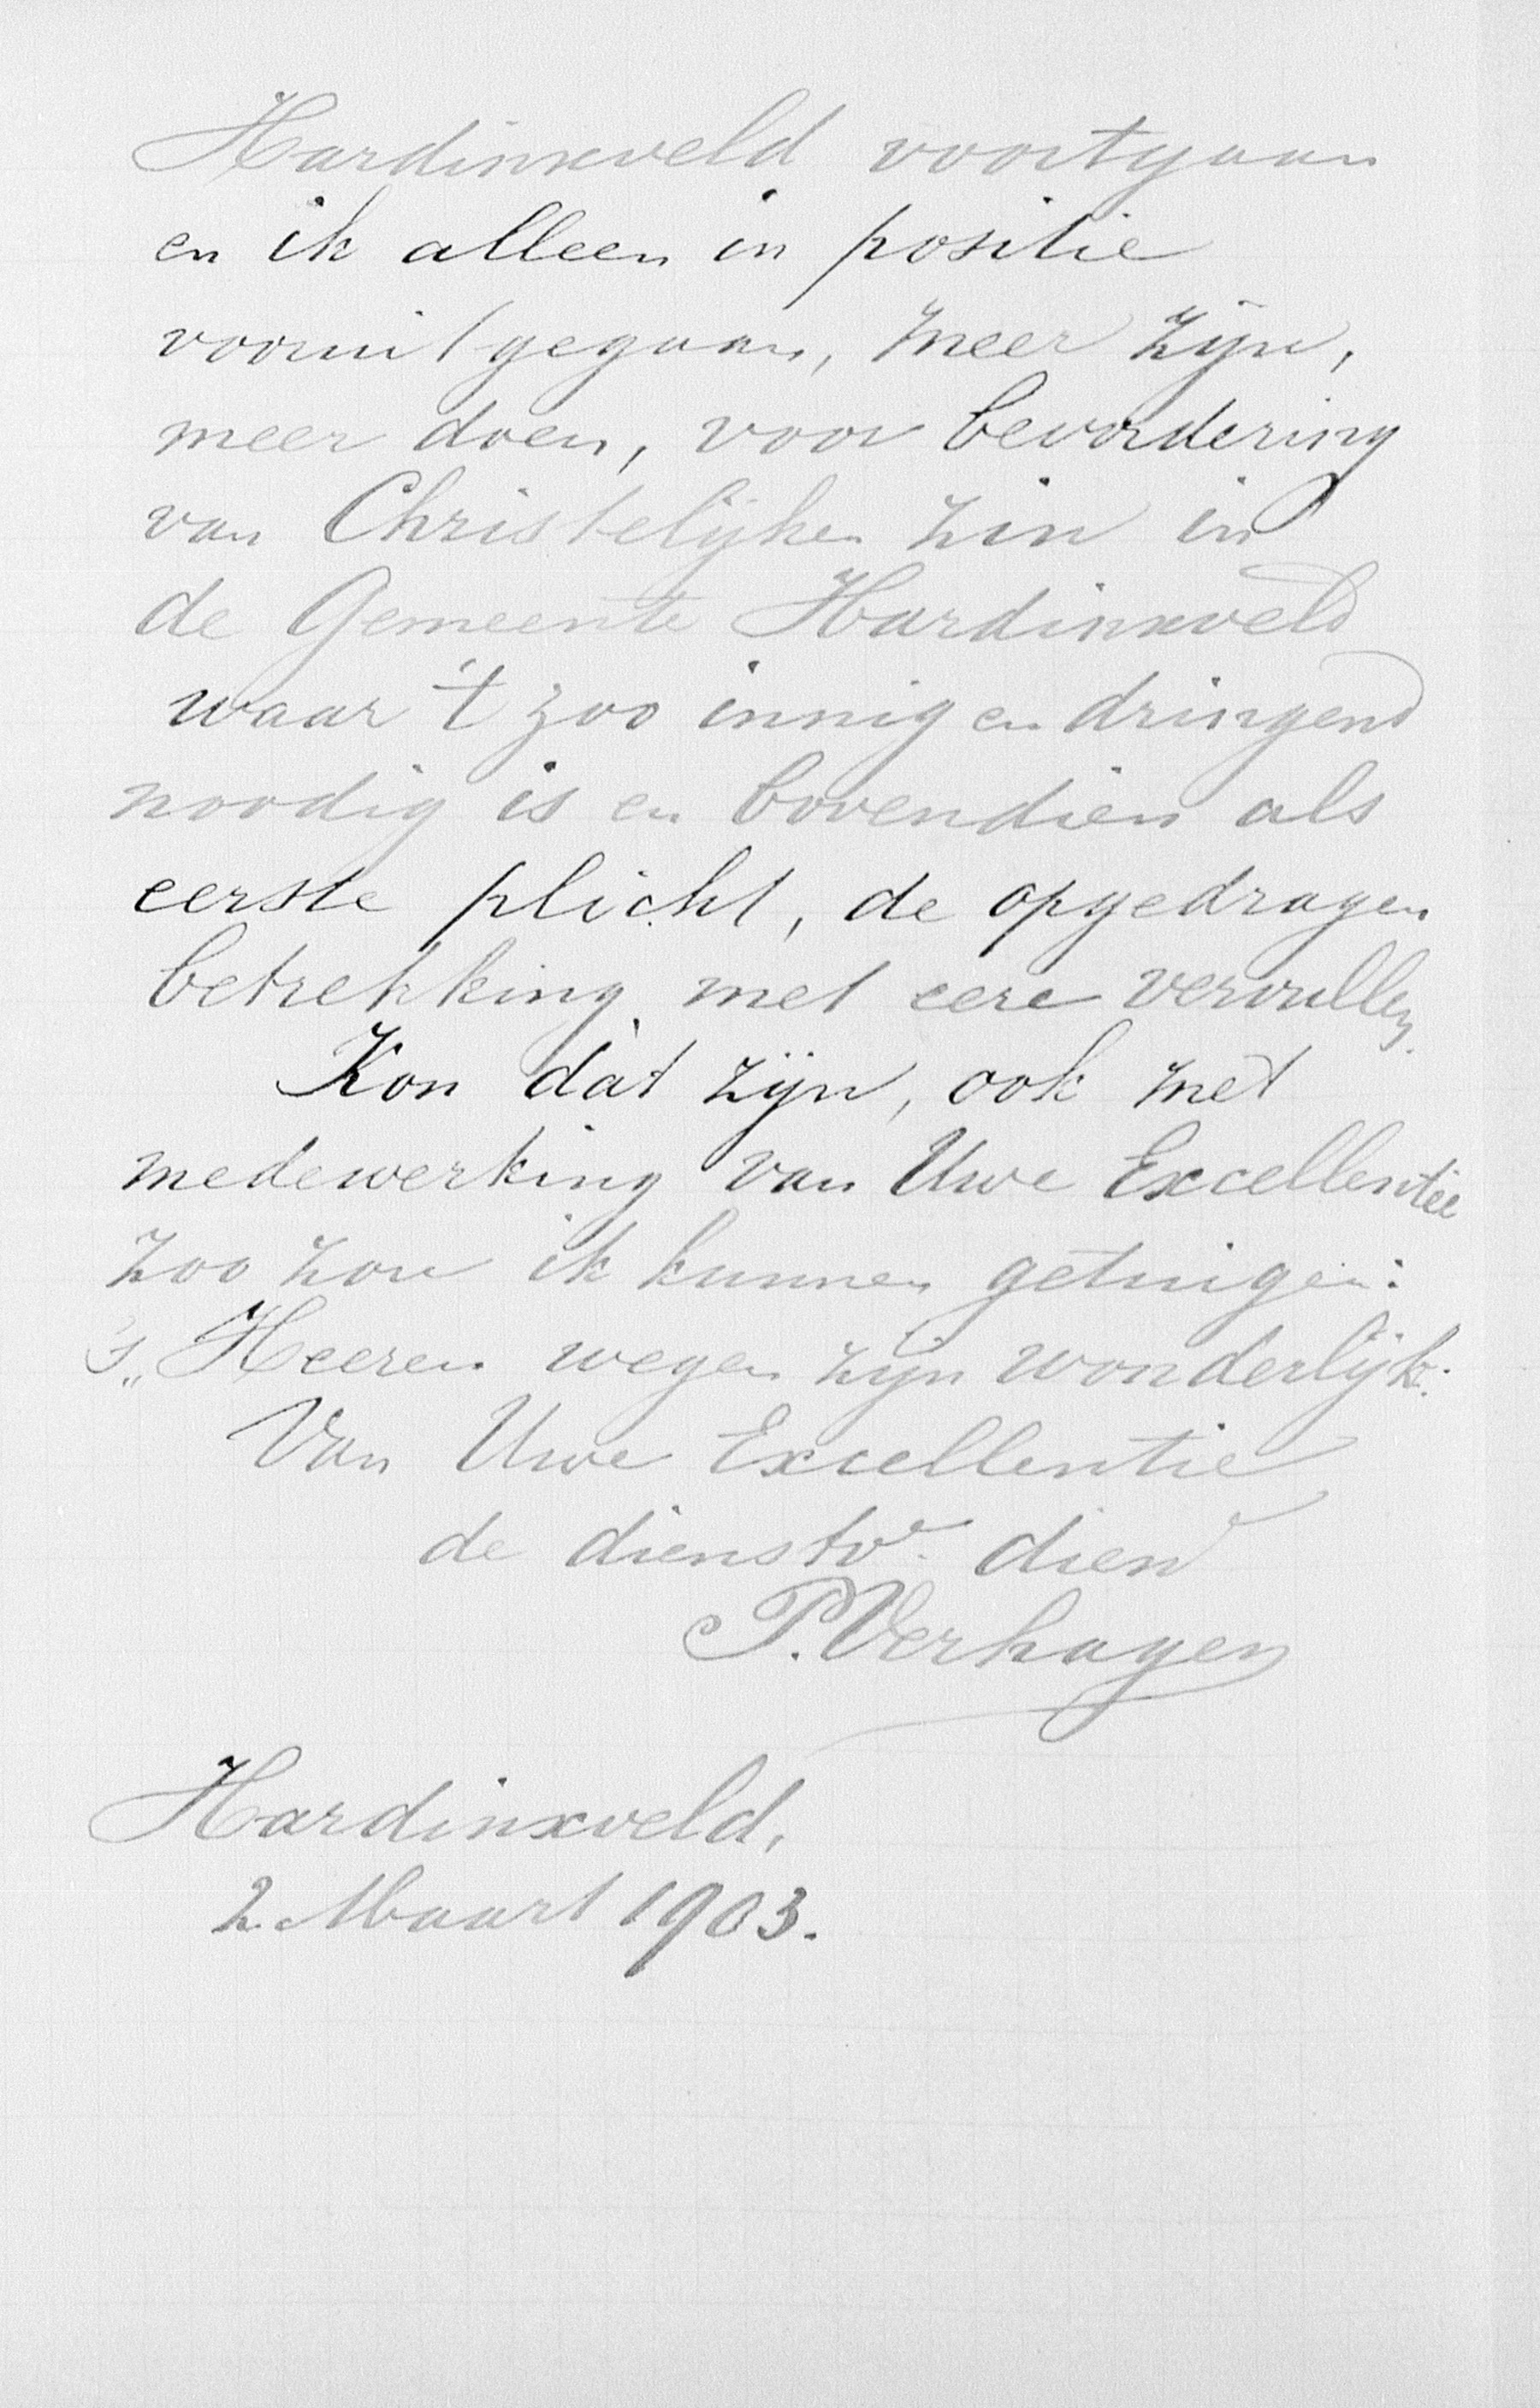 Hardinxveld voortgaan
en ik alleen in positie
vooruitgegaan, meer zijn,
meer doen, voor bevordering
van Christelijken zin in
de Gemeente Hardinxveld
waar 't zoo innig en dringend
noodig is en bovendien als
eerste plicht, de opgedragen
betrekking met eere vervullen.
Kon dàt zijn, ook met
medewerking van Uwe Excellentie
zoo zou ik kunnen getuigen:
's„ Heeren wegen zijn wonderlijk.
Van Uwe Excellentie
de dienstv^e. dien^r
P. Verhagen
Hardinxveld,
2 Maart 1903.